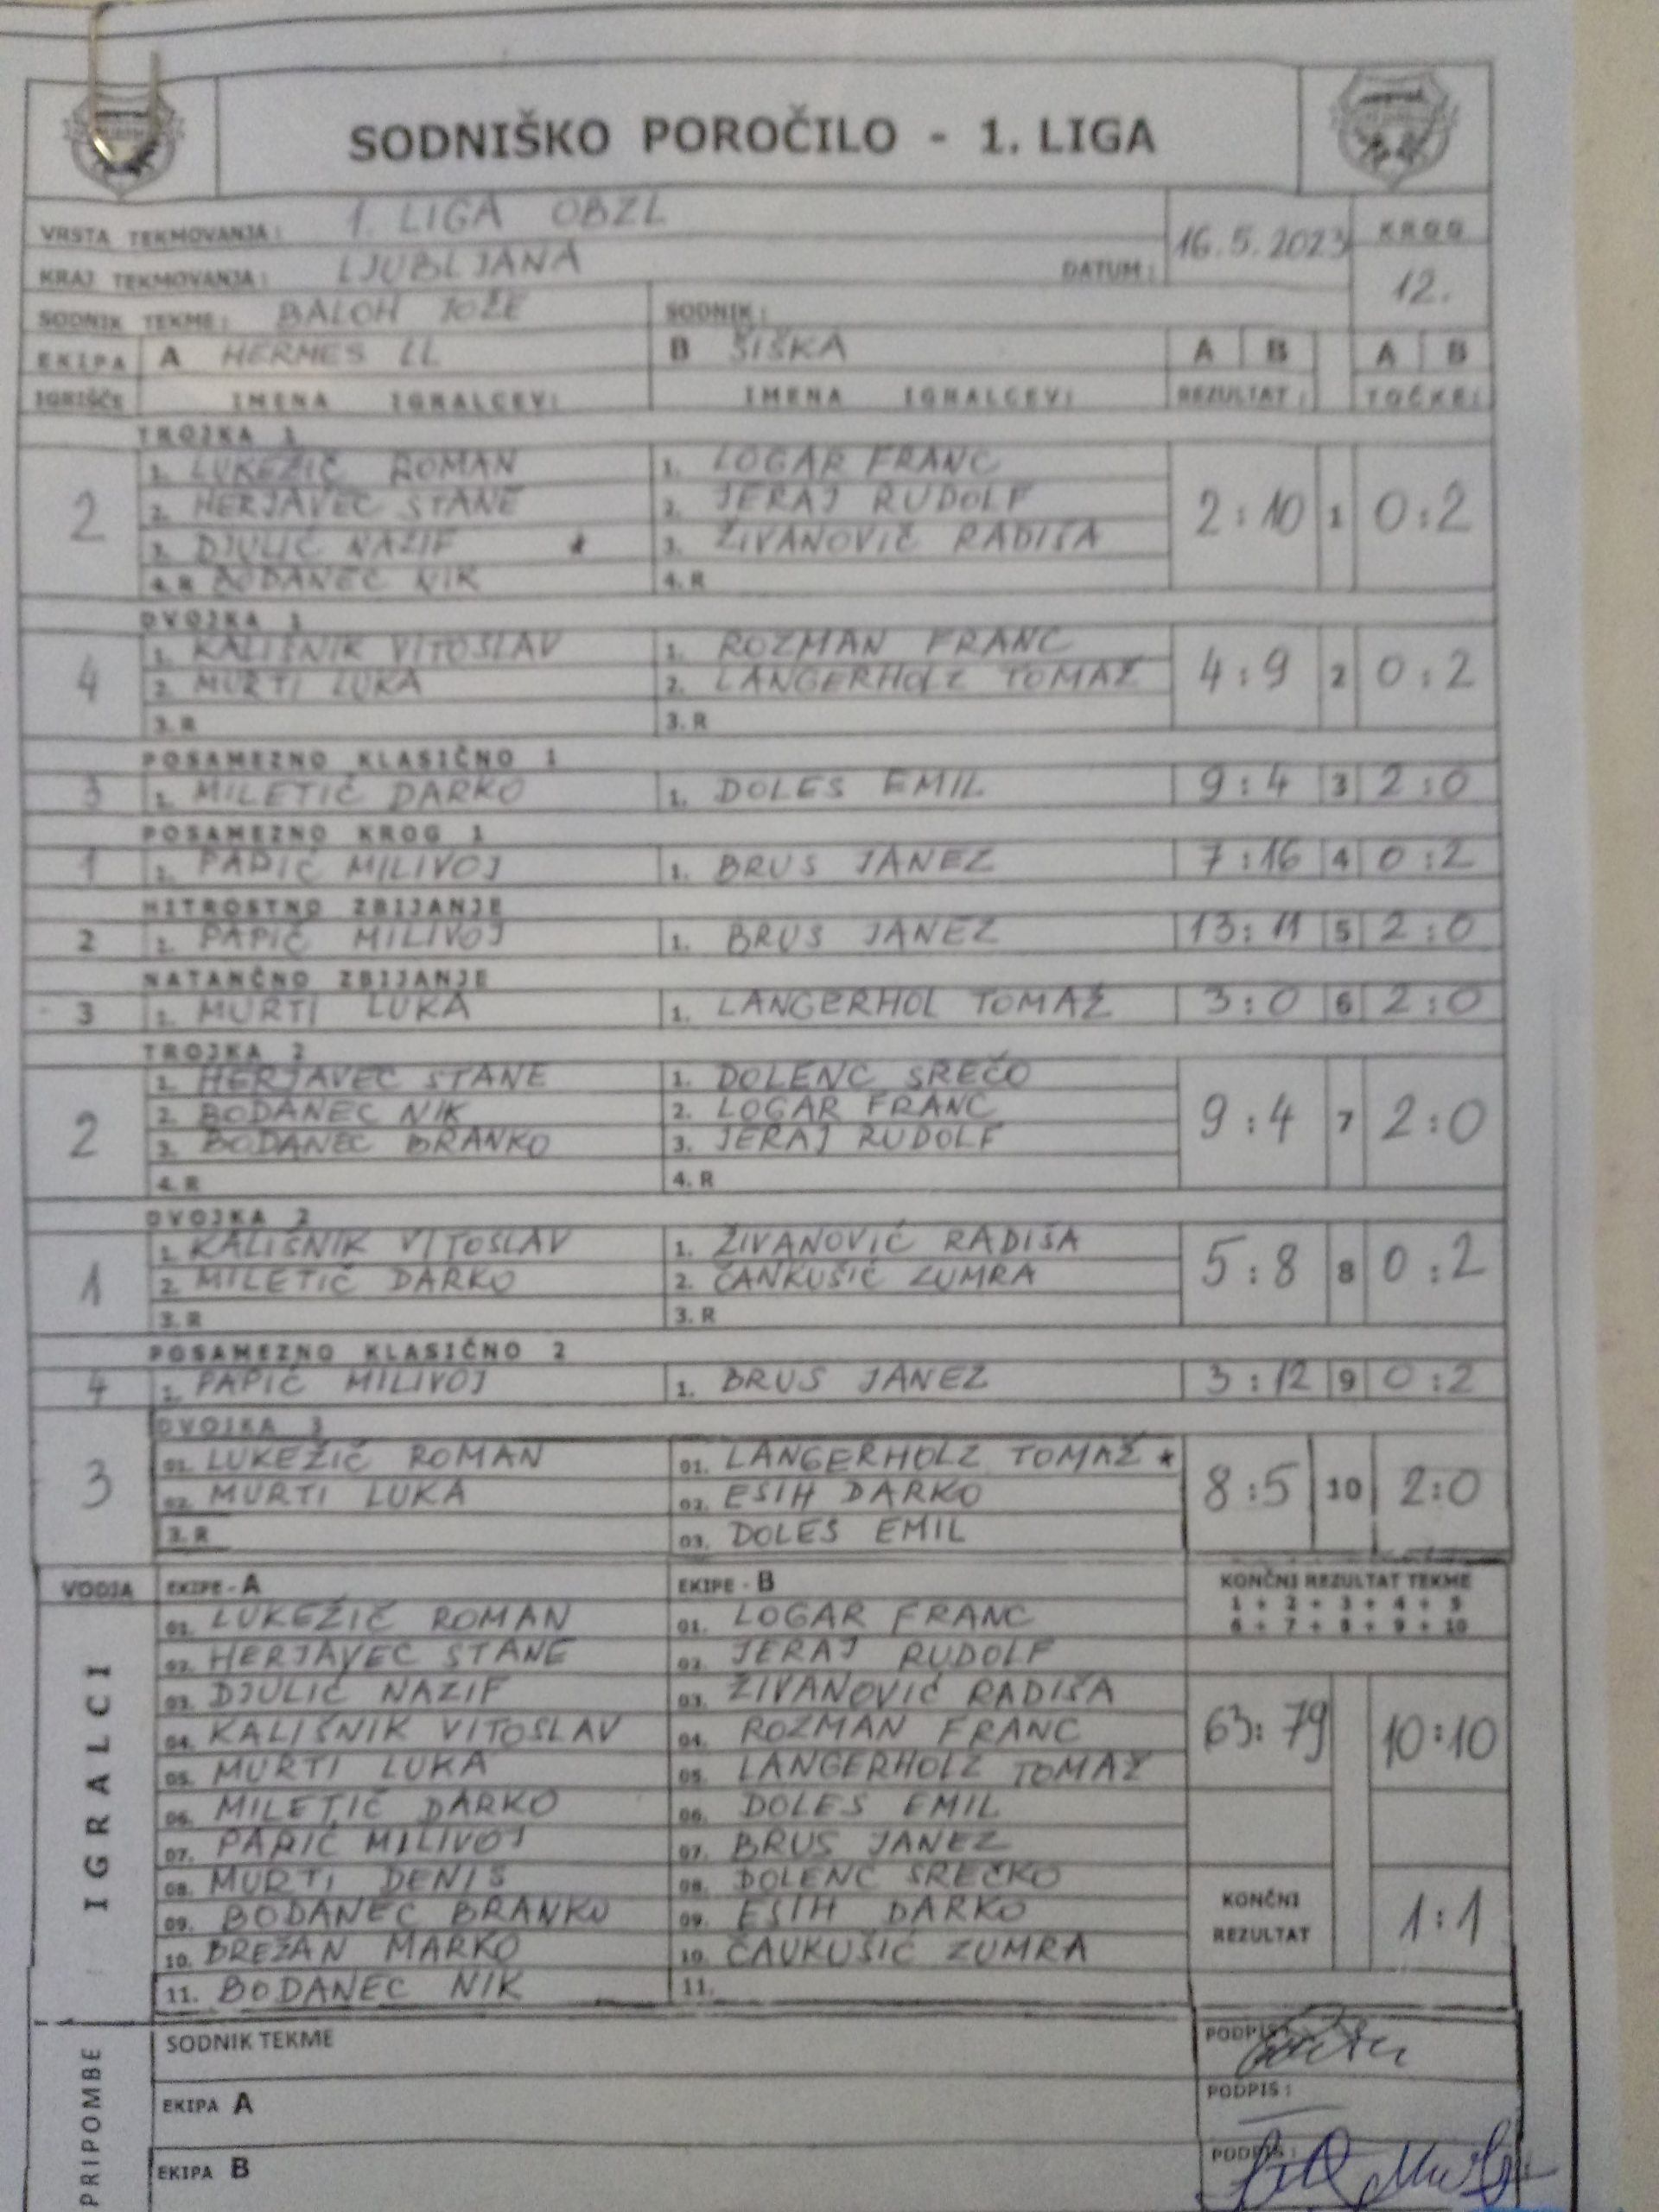 SODNIŠKO POROČILO - 1. LIGA
VRSTA TEKMOVANJA: 1. LIGA OBZL
KRAJ TEKMOVANJA: LJUBLJANA DATUM: 16.5.2023 KROG
SODNIK TEKME: BALOH JOŽE SODNIK: 12.
EKIPA A HERMES LL B ŠIŠKA A B A B
IGRIŠČE IMENA IGRALCEV: IMENA IGRALCEV: REZULTAT: TOČKE:
TROJKA 1
1. LUKEŽIČ ROMAN 1. LOGAR FRANC
2 2. HERJAVEC STANE 2. JERAJ RUDOLF 2:10 1 0:2
3. DJULIĆ NAZIF * 3. ŽIVANOVIČ RADIŠA
4.R BODANEC NIK 4. R
DVOJKA 1
1. KALIŠNIK VITOSLAV 1. ROZMAN FRANC
4 2. MURTI LUKA 2. LANGERHOLZ TOMAŽ 4:9 2 0:2
3.R 3. R
POSAMEZNO KLASIČNO 1
3 1. MILETIĆ DARKO 1. DOLES EMIL 9:4 3 2:0
POSAMEZNO KROG 1
1 1. PAPIĆ MILIVOJ 1. BRUS JANEZ 7:16 4 0:2
HITROSTNO ZBIJANJE
2 1. PAPIČ MILIVOJ 1. BRUS JANEZ 13:11 5 2:0
NATANČNO ZBIJANJE
3 1. MURTI LUKA 1. LANGERHOL TOMAŽ 3:0 6 2:0
TROJKA 2
1. HERJAVEC STANE 1. DOLENC SREČO
2 2. BODANEC NIK 2. LOGAR FRANC 9:4 7 2:0
3. BODANEC BRANKO 3. JERAJ RUDOLF
4. R 4. R
DVOJKA 2
1. KALIŠNIK VITOSLAV 1. ŽIVANOVIĆ RADIŠA
1 2. MILETIČ DARKO 2. ČANKUŠIĆ ZUMRA 5:8 8 0:2
3. R 3. R
POSAMEZNO KLASIČNO 2
4 1. PAPIĆ MILIVOJ 1. BRUS JANEZ 3:12 9 0:2
DVOJKA 3
01. LUKEŽIČ ROMAN 01. LANGERHOLZ TOMAŽ *
3 02. MURTI LUKA 02. ESIH DARKO 8:5 10 2:0
3. R 03. DOLES EMIL
VODJA EKIPE - A EKIPE - B KONČNI REZULTAT TEKME
1 + 2 + 3 + 4 + 5
6 + 7 + 8 + 9 + 10
IGRALCI
01. LUKEŽIČ ROMAN 01. LOGAR FRANC
02. HERJAVEC STANE 02. JERAJ RUDOLF
03. DJULIĆ NAZIF 03. ŽIVANOVIĆ RADIŠA
04. KALIŠNIK VITOSLAV 04. ROZMAN FRANC 63:79 10:10
05. MURTI LUKA 05. LANGERHOLZ TOMAŽ
06. MILETIČ DARKO 06. DOLES EMIL
07. PAPIĆ MILIVOJ 07. BRUS JANEZ
08. MURTI DENIS 08. DOLENC SREČKO
09. BODANEC BRANKO 09. ESIH DARKO KONČNI REZULTAT 1:1
10. BREŽAN MARKO 10. ČAUKUŠIĆ ZUMRA
11. BODANEC NIK 11.
PRIPOMBE
SODNIK TEKME PODPIS:
EKIPA A PODPIS:
EKIPA B PODPIS: